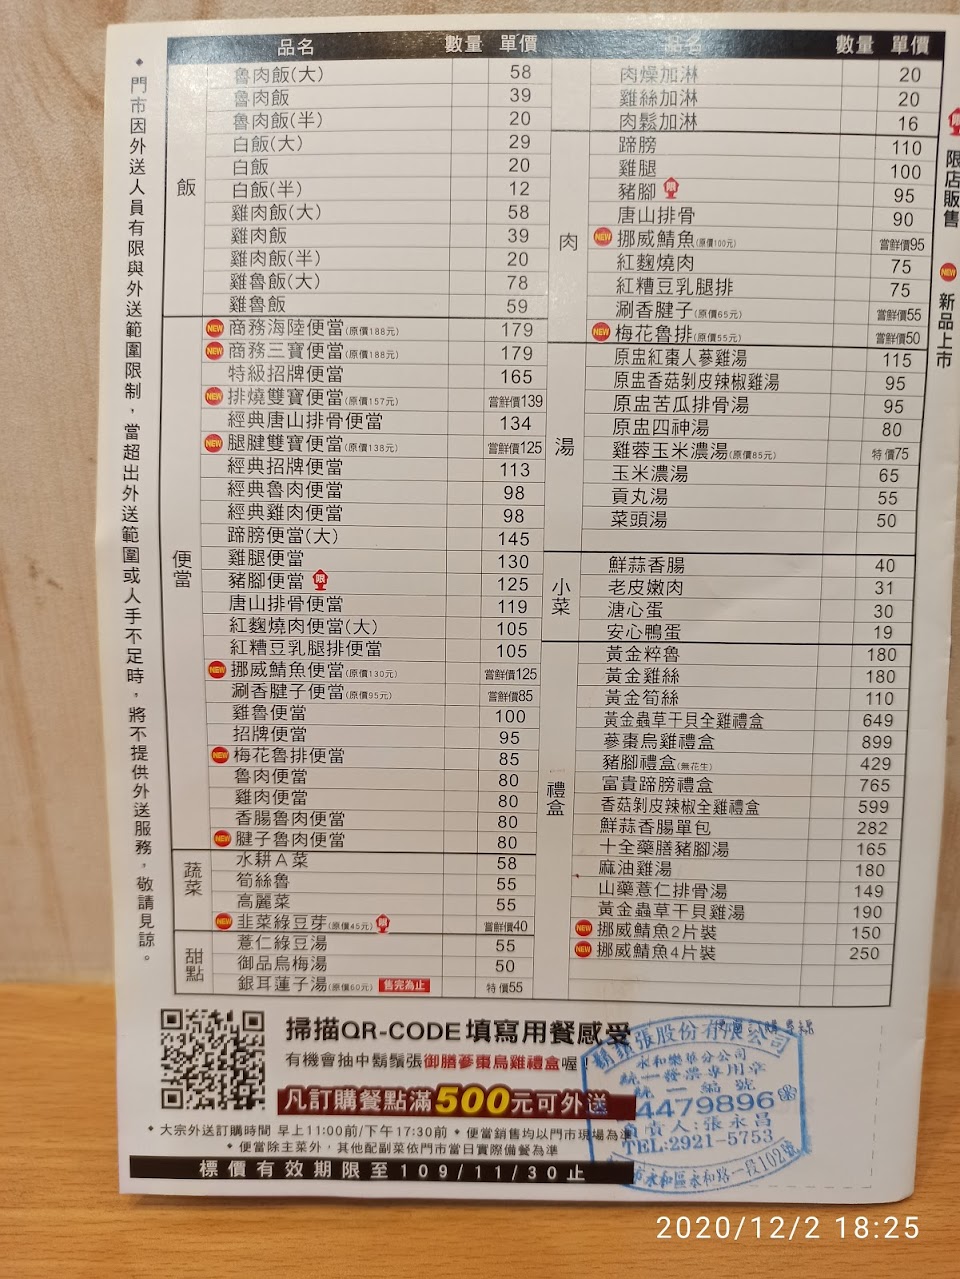 品名 數量 單價
飯
魯肉飯(大) 58
魯肉飯 39
魯肉飯(半) 20
白飯(大) 29
白飯 20
白飯(半) 12
雞肉飯(大) 58
雞肉飯 39
雞肉飯(半) 20
雞魯飯(大) 78
雞魯飯 59
便當
NEW 商務海陸便當(原價188元) 179
NEW 商務三寶便當(原價188元) 179
特級招牌便當 165
NEW 排燒雙寶便當(原價157元) 嘗鮮價139
經典唐山排骨便當 134
NEW 腿腱雙寶便當(原價138元) 嘗鮮價125
經典招牌便當 113
經典魯肉便當 98
經典雞肉便當 98
蹄膀便當(大) 145
雞腿便當 130
豬腳便當 限 125
唐山排骨便當 119
紅麴燒肉便當(大) 105
紅糟豆乳腿排便當 105
NEW 挪威鯖魚便當(原價130元) 嘗鮮價125
涮香腱子便當(原價95元) 嘗鮮價85
雞魯便當 100
招牌便當 95
NEW 梅花魯排便當 85
魯肉便當 80
雞肉便當 80
香腸魯肉便當 80
NEW 腱子魯肉便當 80
蔬菜
水耕A菜 58
筍絲魯 55
高麗菜 55
NEW 韭菜綠豆芽(原價45元) 限 嘗鮮價40
甜點
薏仁綠豆湯 55
御品烏梅湯 50
銀耳蓮子湯(原價60元) 售完為止 特價55
品名 數量 單價
肉燥加淋 20
雞絲加淋 20
肉鬆加淋 16
肉
蹄膀 110
雞腿 100
豬腳 限 95
唐山排骨 90
NEW 挪威鯖魚(原價100元) 嘗鮮價95
紅麴燒肉 75
紅糟豆乳腿排 75
涮香腱子(原價65元) 嘗鮮價55
NEW 梅花魯排(原價55元) 嘗鮮價50
湯
原盅紅棗人蔘雞湯 115
原盅香菇剝皮辣椒雞湯 95
原盅苦瓜排骨湯 95
原盅四神湯 80
雞蓉玉米濃湯(原價85元) 特價75
玉米濃湯 65
貢丸湯 55
菜頭湯 50
小菜
鮮蒜香腸 40
老皮嫩肉 31
溏心蛋 30
安心鴨蛋 19
禮盒
黃金粹魯 180
黃金雞絲 180
黃金筍絲 110
黃金蟲草干貝全雞禮盒 649
蔘棗烏雞禮盒 899
豬腳禮盒(無花生) 429
富貴蹄膀禮盒 765
香菇剝皮辣椒全雞禮盒 599
鮮蒜香腸單包 282
十全藥膳豬腳湯 165
麻油雞湯 180
山藥薏仁排骨湯 149
黃金蟲草干貝雞湯 190
NEW 挪威鯖魚2片裝 150
NEW 挪威鯖魚4片裝 250
限 限店販售
NEW 新品上市
◆門市因外送人員有限與外送範圍限制，當超出外送範圍或人手不足時，將不提供外送服務，敬請見諒。
掃描QR-CODE填寫用餐感受
有機會抽中鬍鬚張御膳蔘棗烏雞禮盒喔！
凡訂購餐點滿500元可外送
◆大宗外送訂購時間 早上11:00前/下午17:30前 ◆便當銷售均以門市現場為準
◆便當除主菜外，其他配副菜依門市當日實際備餐為準
標價有效期限至109/11/30止
鬍鬚張股份有限公司
永和樂華分公司
統一發票專用章
統一編號
4479896
負責人:張永昌
TEL:2921-5753
市永和區永和路一段102號
2020/12/2 18:25